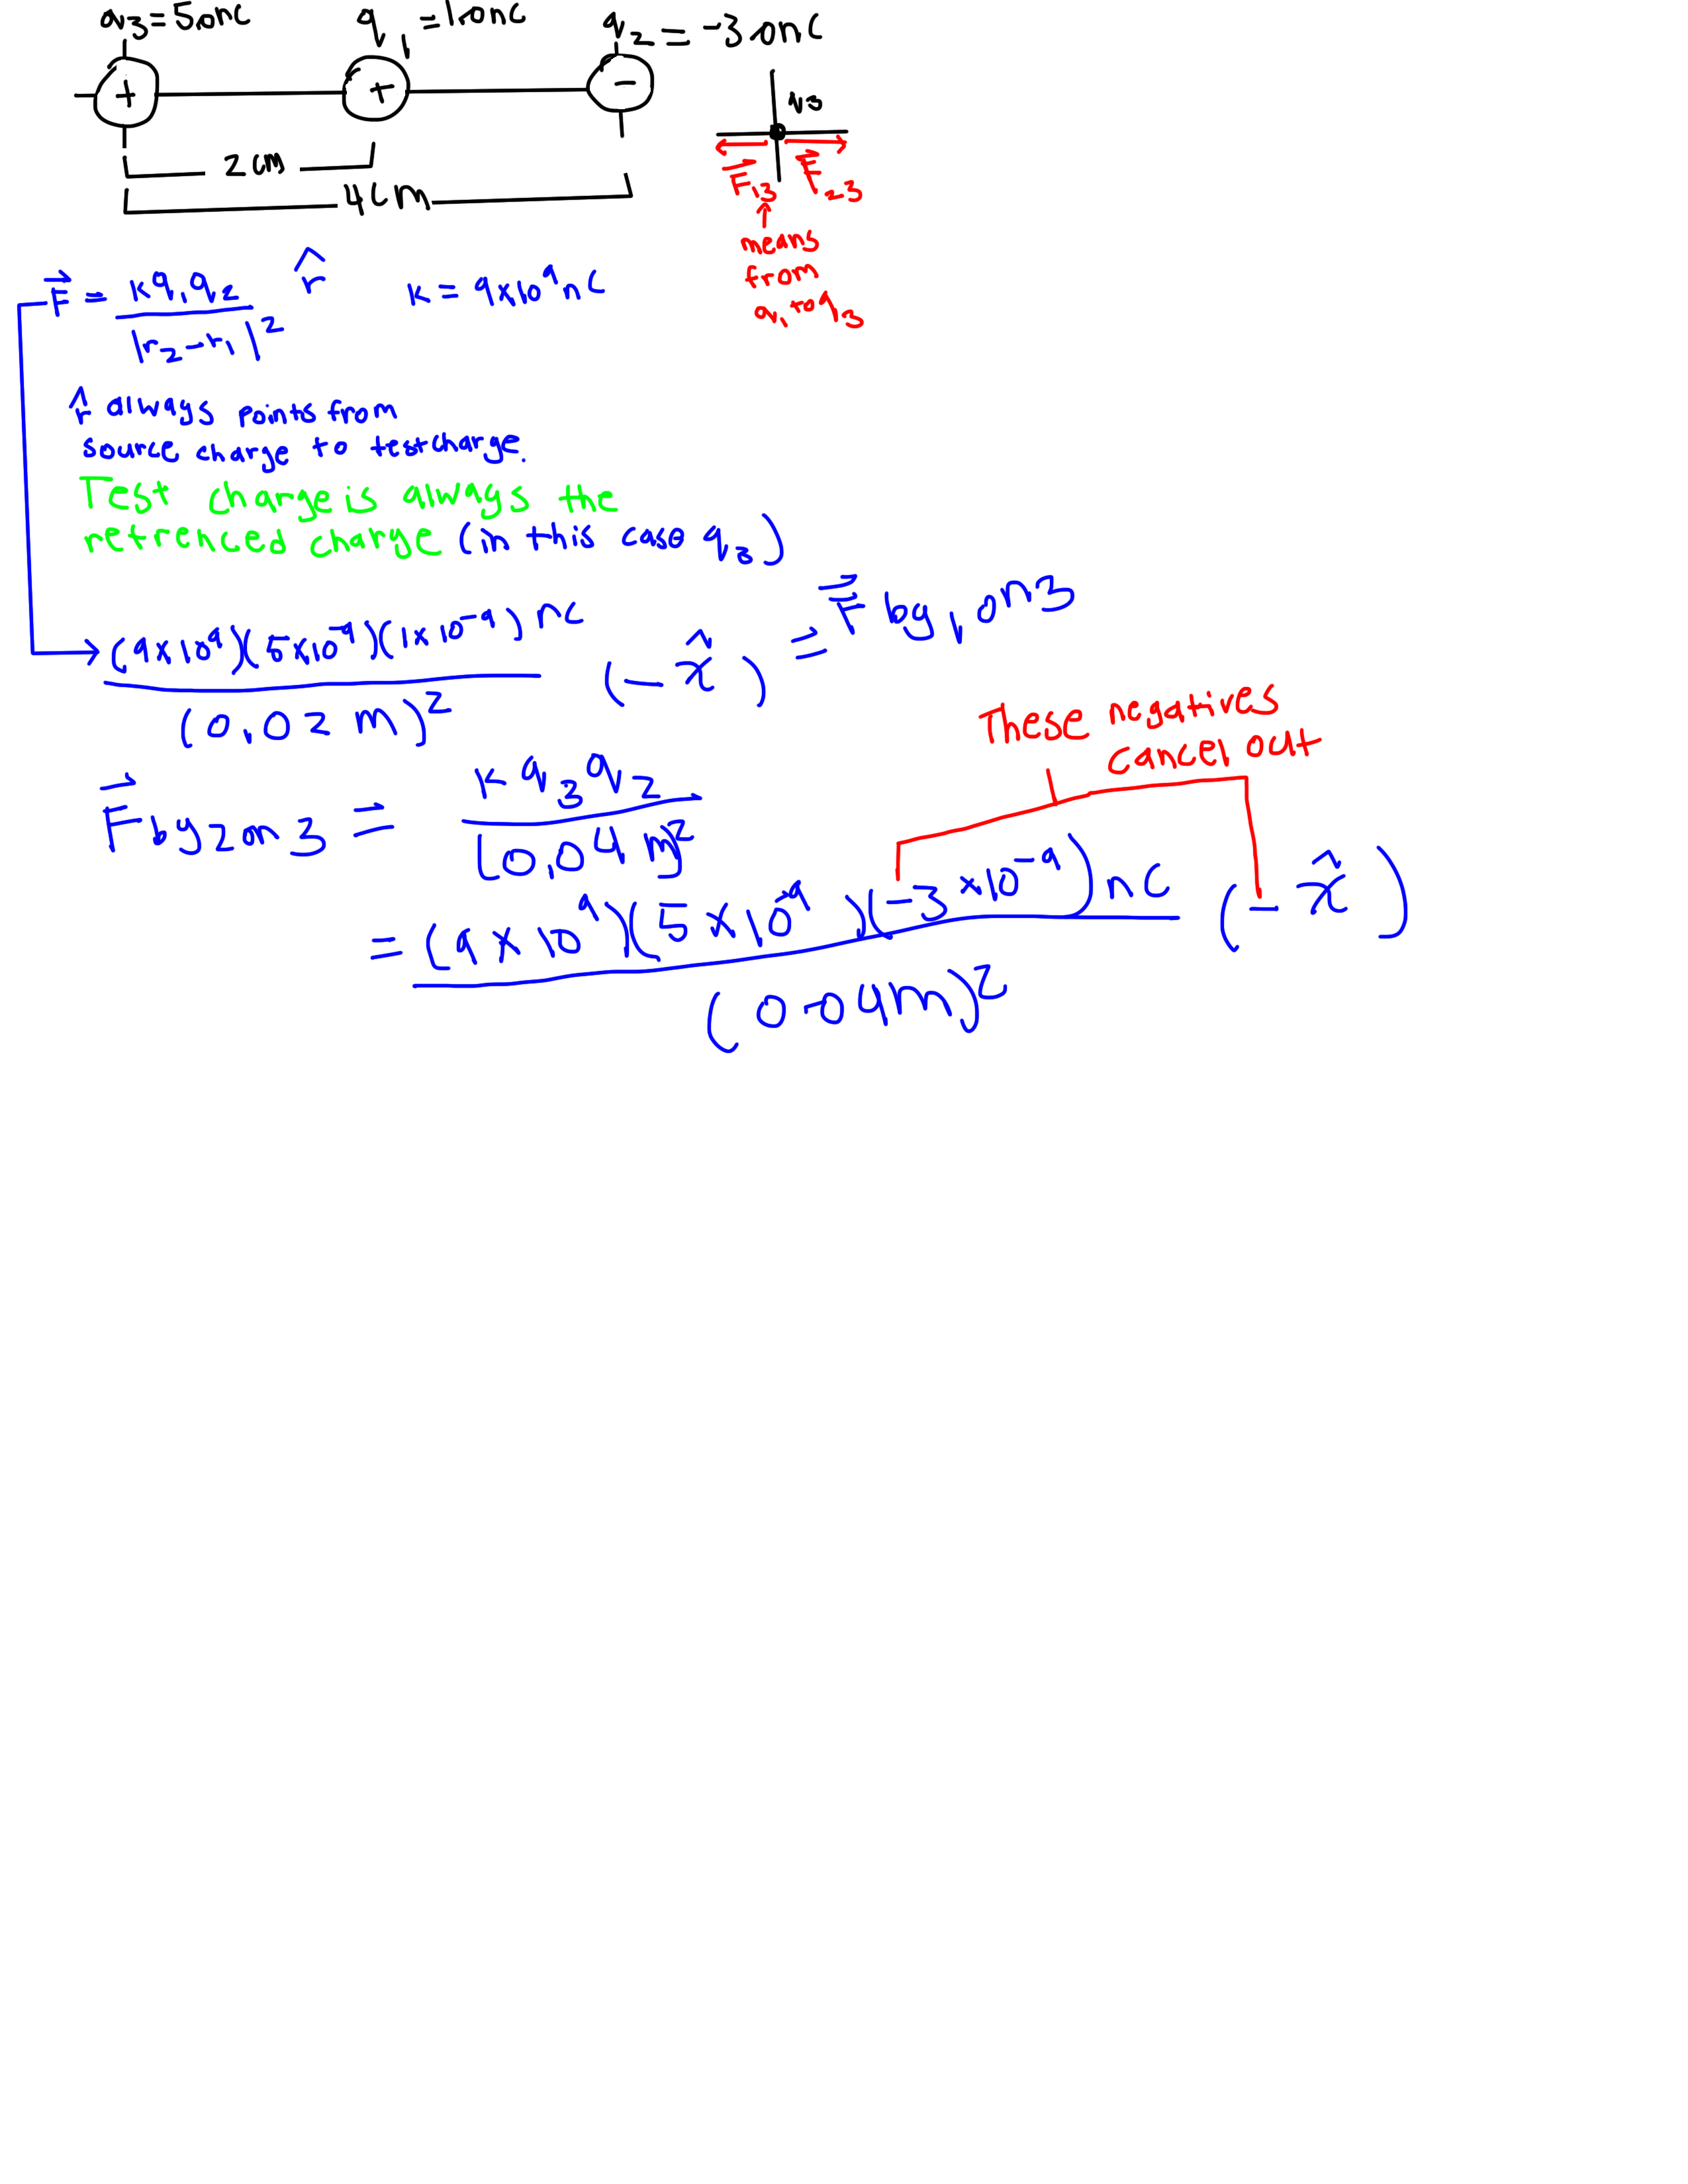 q₃ = 5.0nC q₁ = 1.0 nC q₂ = -3.0nC
+ + -
q₃
2cm
4cm
F⃗₁₃ F⃗₂₃
↑
means
from
q₁ to q₃
F⃗ = kq₁q₂ / |r₂-r₁|² r̂ k = 9x10⁹ nC
r̂ always points from
source charge to testcharge.
Test charge is always the
refrenced charge (in this case q₃)
(9x10⁹)(5x10⁻⁹)(1x10⁻⁹) nC / (0.02 m)² (-x̂) = F⃗ by 1 on 3
These negatives
cancel out
F⃗ by 2 on 3 = kq₃q₂ / (0.04m)²
= (9x10⁹)(5x10⁻⁹)(-3x10⁻⁹) nC / (0.04m)² (-x̂)